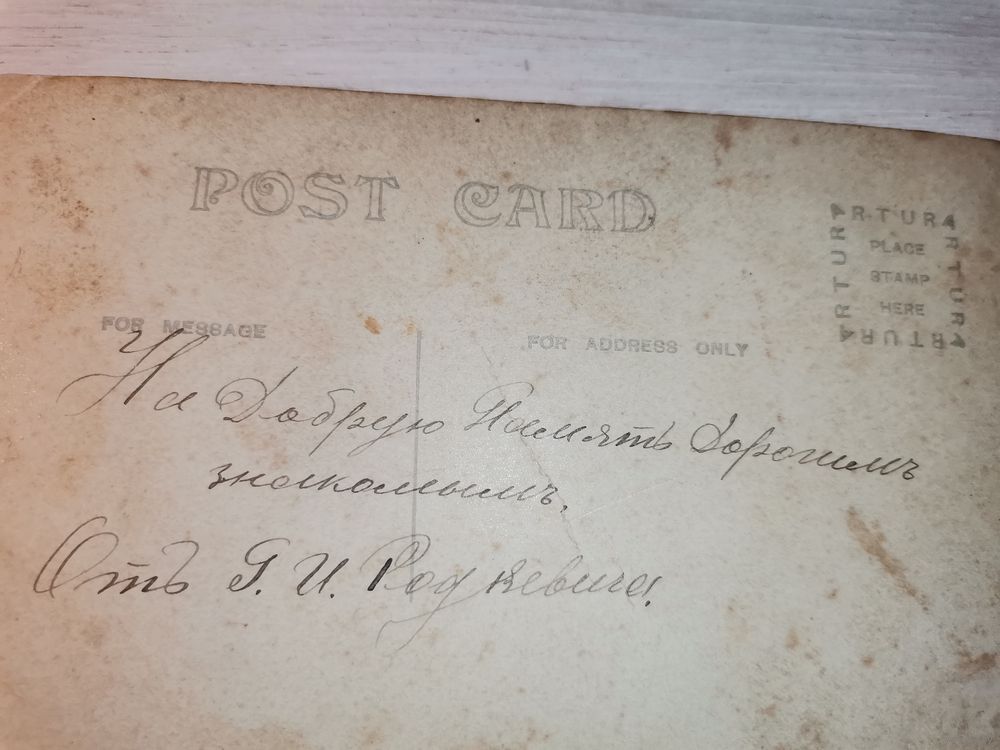 POST CARD
ARTURA
ARTURA
PLACE
STAMP
HERE
ARTURA
ARTURA
FOR MESSAGE
FOR ADDRESS ONLY
На Добрую Память Дорогимъ
знакомымъ.
Отъ Г. И. Родкевича.